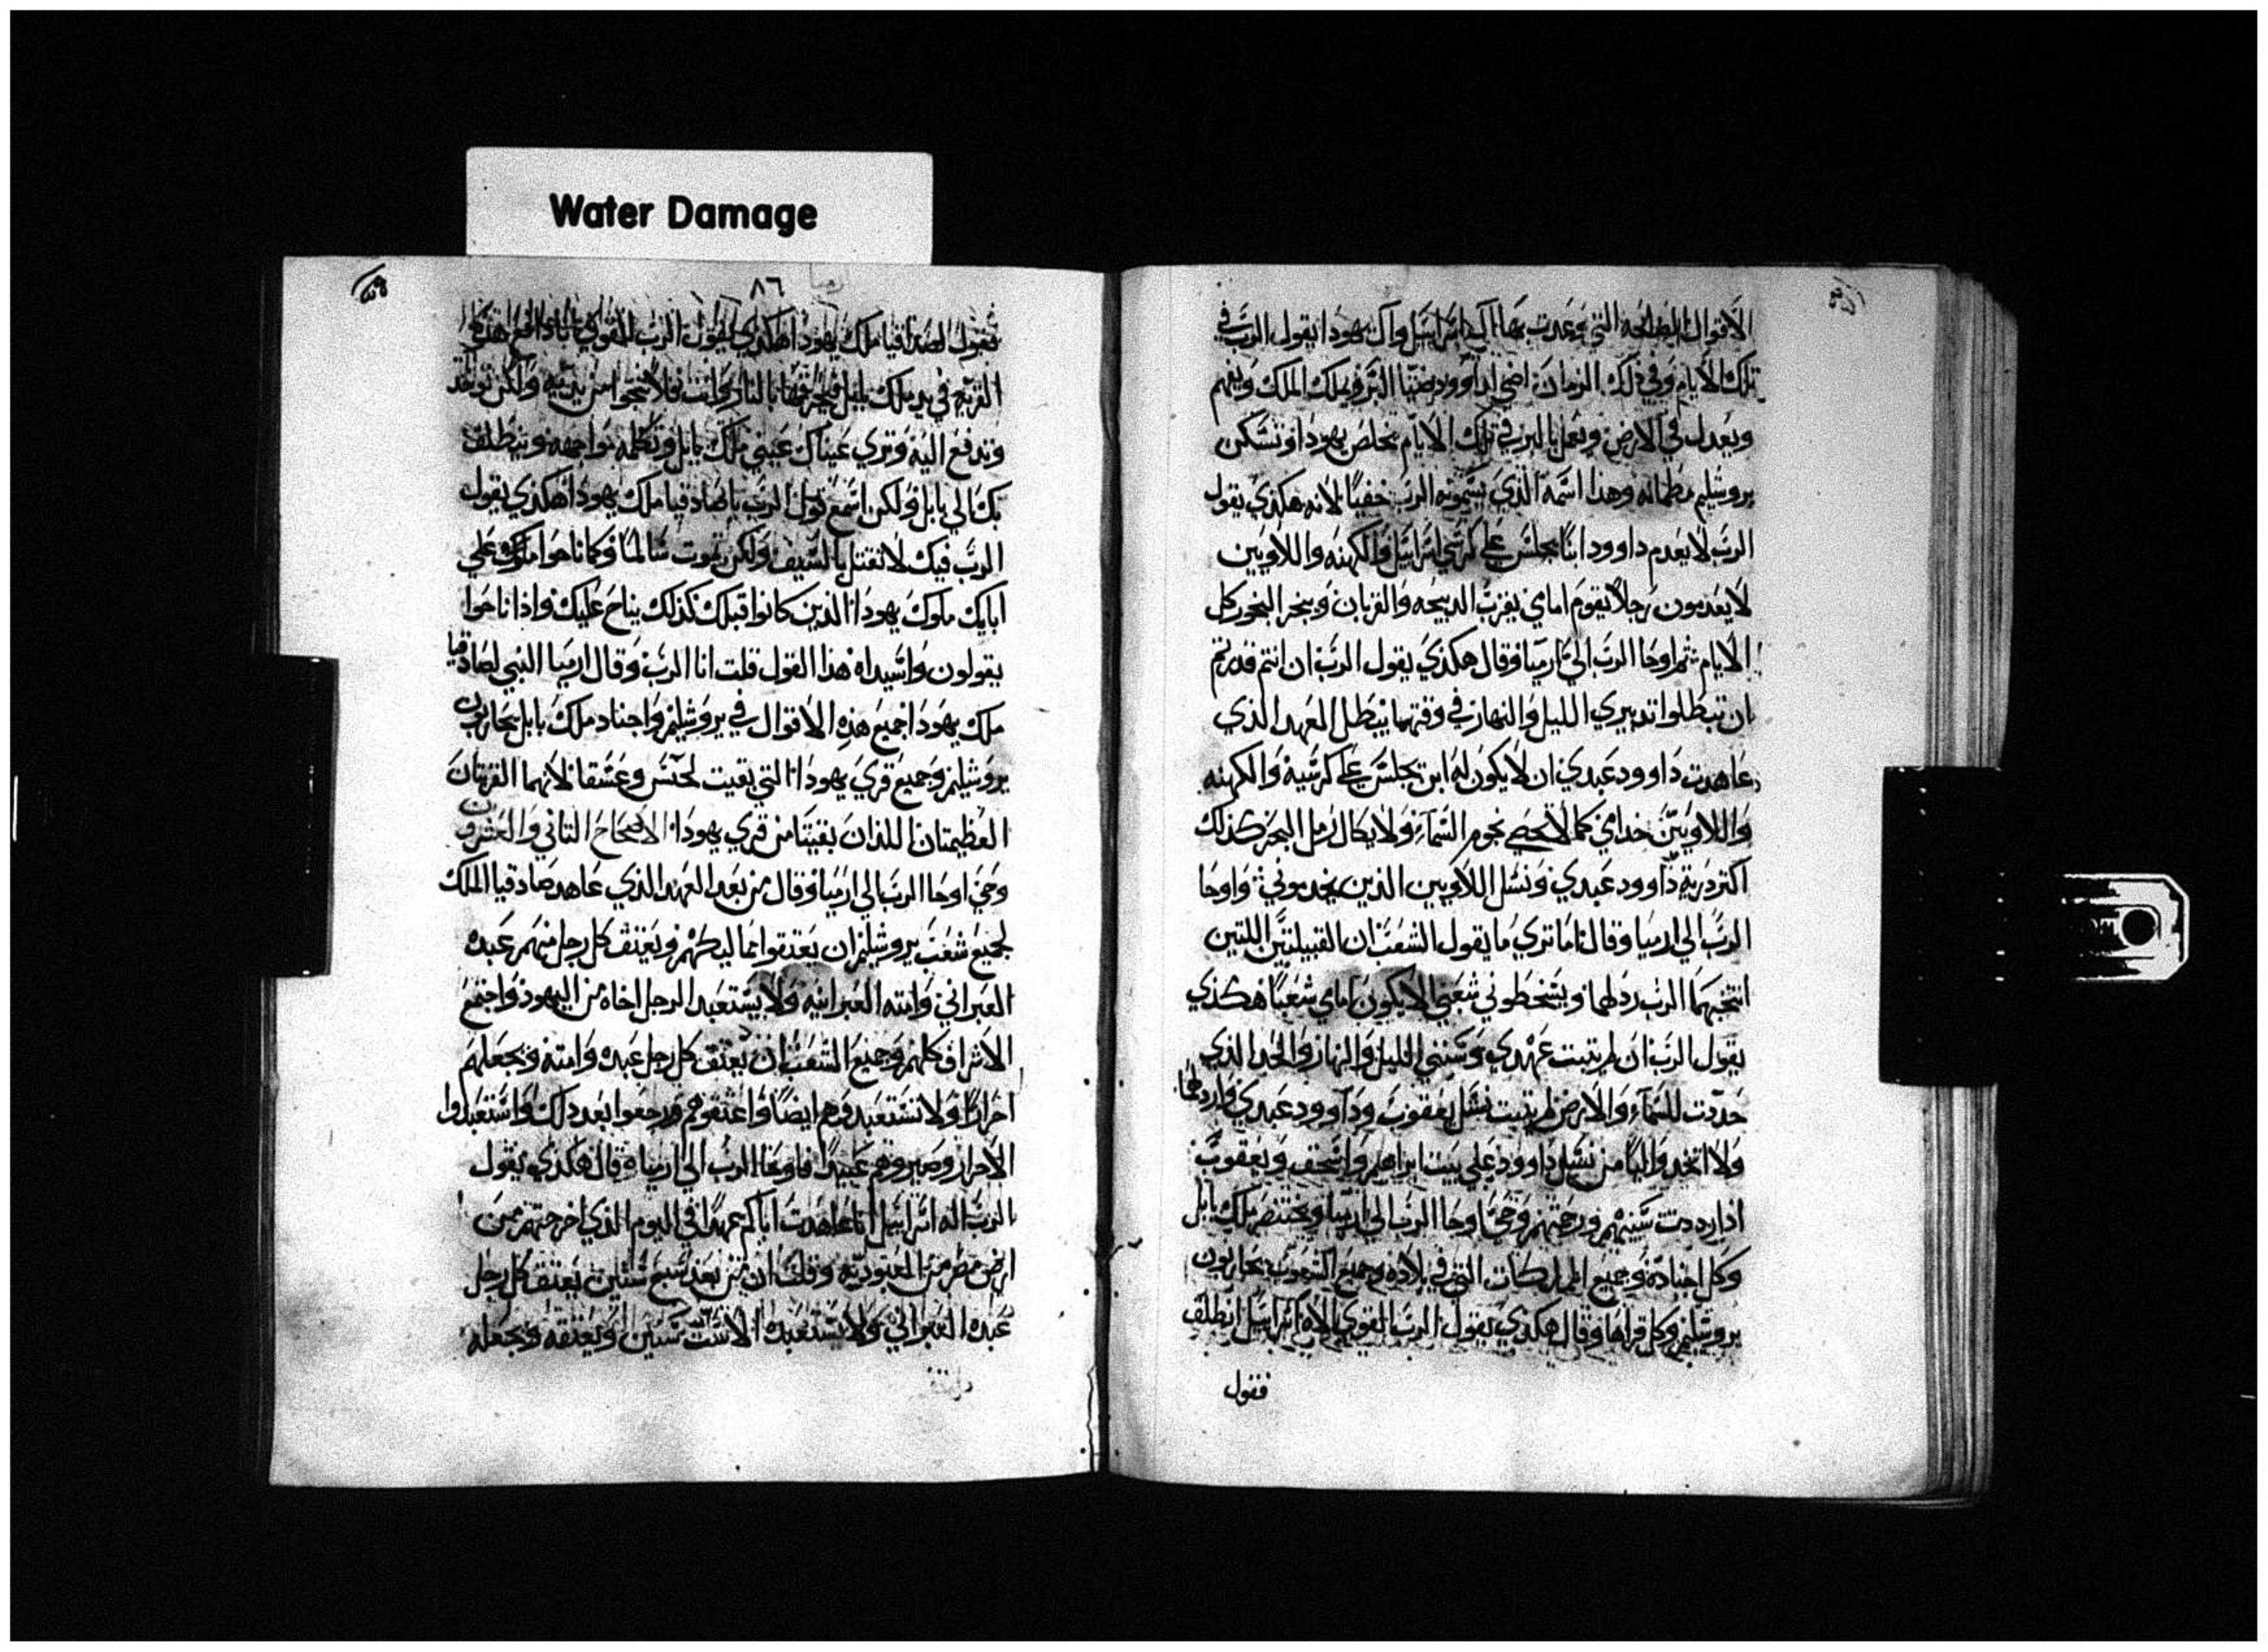 Water Damage
الاقوال الصالحه التي وعدت بها ال اسراييل وال يهودا يقول الرب في
تلك الايام وفي ذلك الزمان اضي لداوود ضيا البر ويملك الملك ويفهم
ويعدل في الارض ويعمل بالبر في تلك الايام يخلص يهودا وتسكن
يروشليم مطمانه وهذا اسمه الذي يسمونه الرب خفيا لانه هكذي يقول
الرب لا يعدم داوود ابنا يجلس علي كرسي اسراييل والكهنه واللاويين
لا يعدمون رجلا يقوم امامي يقرب الدبيحه والقربان ويبخر البخور كل
الايام ثم اوحا الرب الي ارميا وقال هكذي يقول الرب ان انتم قدرتم
ان تبطلوا تدبيري الليل والنهار في وقتهما يبطل العهد الذي
عاهدت داوود عبدي ان لا يكون له ابن يجلس علي كرسيه والكهنه
واللاويين خدامي كما لا تحصي نجوم السماء ولا يكال رمل البحر كذلك
اكتر ذرية داوود عبدي ونسل اللاويين الذين يخدموني واوحا
الرب الي ارميا وقال اما تري ما يقول الشعب ان القبيلتين اللتين
انتخبهما الرب ردلهما ويسخطوني شعبي لا يكون امامي شعبا هكذي
يقول الرب ان لم يتبت عهدي وسنني الليل والنهار والحد الذي
حددت للسماء والارض لم يتبت نسل يعقوب وداوود عبدي واردلهما
ولا اتخد واليا من نسل داوود علي بيت ابراهيم واسحق ويعقوب
اذا رددت سبيهم ورحمتهم وحي اوحا الرب الي ارميا وبختنصر ملك بابل
وكل اجناده وجميع المملكات التي في بلاده وجميع الشعوب يحاربون
يروشليم وكل قراها وقال هكدي يقول الرب القوي الاه اسراييل انطلق
فقول
٨٦
فقول لصادقيا ملك يهودا هكدي يقول الرب القوي
القريه في يد ملك بابل فيحرقها بالنار وانت فلا تنجوا من يديه ولكن توخد
وتدفع اليه وتري عيناك عيني ملك بابل وتكلمه مواجهه وينطلق
بك الي بابل ولكن اسمع قول الرب يا صادقيا ملك يهودا هكدي يقول
الرب فيك لا تقتل بالسيف ولكن تموت سالما وكما ناحوا ملوك علي
ابايك ملوك يهودا الذين كانوا قبلك كذلك يناح عليك واذا ناحوا
يقولون واسيداه هذا القول قلت انا الرب وقال ارميا النبي لصادقيا
ملك يهودا جميع هذه الاقوال في يروشليم واجناد ملك بابل يحاربون
يروشليم وجميع قري يهودا التي بقيت لحنس وعشقا لانهما القريتان
العظيمتان اللذان بقيتا من قري يهودا الاصحاح التاني والعشرون
وحي اوحا الرب الي ارميا وقال من بعد العهد الذي عاهد صادقيا الملك
لجميع شعب يروشليم ان يعتقوا مماليكهم ويعتق كل رجل منهم عبده
العبراني وامته العبرانيه ولا يستعبد الرجل اخاه من اليهود واجتمع
الاشراف كلهم وجميع الشعب ان يعتق كل رجل عبده وامته ويجعلهم
احرارا ولا تستعبدوهم ايضا واعتقوهم ورجعوا بعد دلك واستعبدوا
الاحرار وصيروهم عبيدا فاوحا الرب الي ارمياه قال هكدي يقول
الرب اله اسراييل انا عاهدت اباكم عهدا في اليوم الذي اخرجتهم من
ارض مصر من العبوديه وقلت ان من بعد سبع سنين يعتق كل رجل
عبده العبراني ولا يستعبده الا ست سنين ويعتقه ويجعله